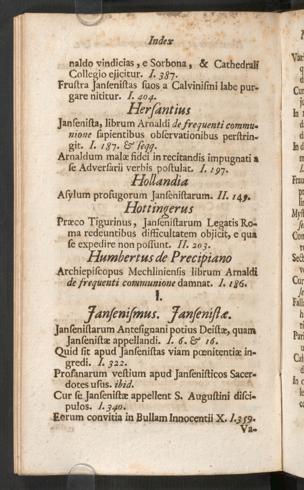 Index
naldo vindicias, e Sorbona, & Cathedrali
Collegio ejicitur. I. 387.
Frustra Jansenistas suos a Calvinismi labe pur-
gare nititur. I. 404.
Hersantius
Jansenista, librum Arnaldi de frequenti commu-
nione sapientibus observationibus perstrin-
git. I. 187. & seqq.
Arnaldum malæ fidei in recitandis impugnati a
se Adversarii verbis postulat. I. 197.
Hollandia
Asylum profugorum Jansenistarum. II. 149.
Hottingerus
Præco Tigurinus, Jansenistarum Legatis Ro-
ma redeuntibus difficultatem objicit, e qua
se expedire non possunt. II. 203.
Humbertus de Precipiano
Archiepiscopus Mechliniensis librum Arnaldi
de frequenti communione damnat. I. 186.
I.
Jansenismus. Jansenistæ.
Jansenistarum Antesignani potius Deistæ, quam
Jansenistæ appellandi. I. 6. & 16.
Quid sit apud Jansenistas viam pœnitentiæ in-
gredi. I. 322.
Profanarum vestium apud Jansenisticos Sacer-
dotes usus. ibid.
Cur se Jansenistæ appellent S. Augustini disci-
pulos. I. 340.
Eorum convitia in Bullam Innocentii X. I. 359.
Va-